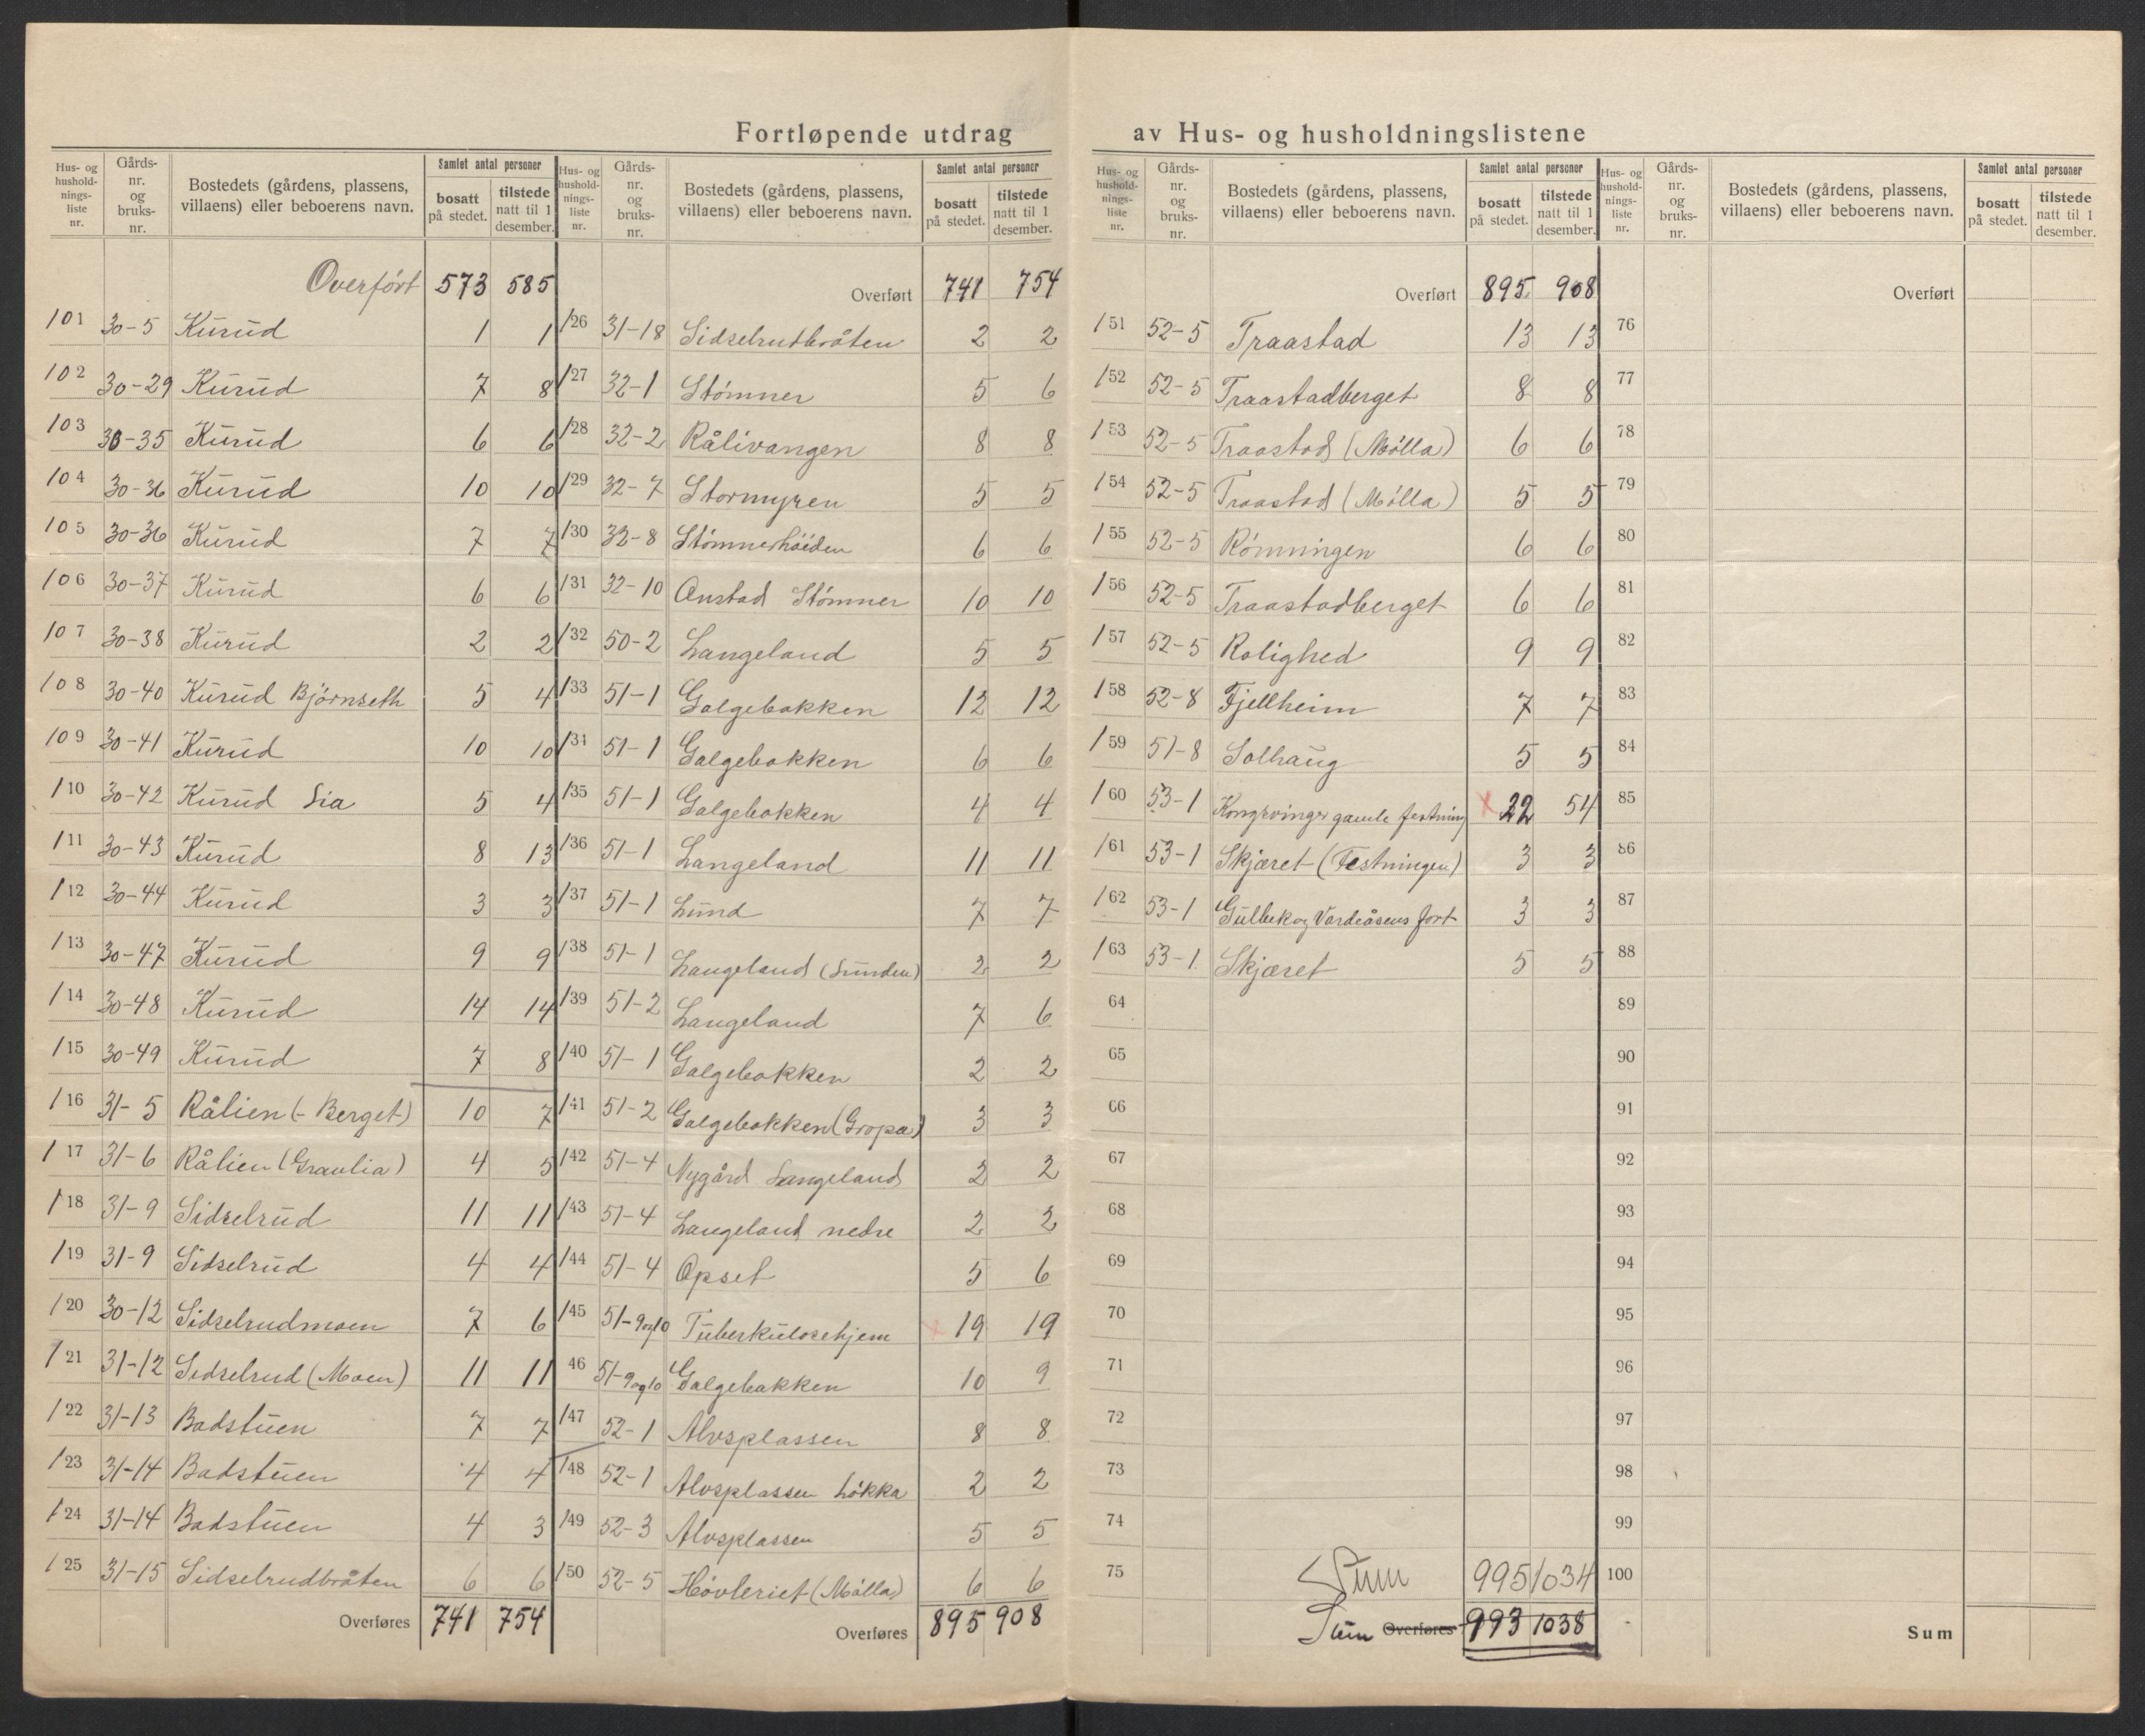 Fortløpende utdrag av Hus- og husholdningslistene
Hus- og hushold-nings-liste nr. Gårds-nr. og bruks-nr. Bostedets (gårdens, plassens, villaens) eller beboerens navn. Samlet antal personer bosatt på stedet. tilstede natt til 1 desember.
Overført 573 585
101 30-5 Kurud 1 1
102 30-29 Kurud 7 8
103 30-35 Kurud 6 6
104 30-36 Kurud 10 10
105 30-36 Kurud 7 7
106 30-37 Kurud 6 6
107 30-38 Kurud 2 2
108 30-40 Kurud Bjørnseth 5 4
109 30-41 Kurud 10 10
110 30-42 Kurud Lia 5 4
111 30-43 Kurud 8 13
112 30-44 Kurud 3 3
113 30-47 Kurud 9 9
114 30-48 Kurud 14 14
115 30-49 Kurud 7 8
116 31-5 Rålien (- Berget) 10 7
117 31-6 Rålien (Graulia) 4 5
118 31-9 Sidselrud 11 11
119 31-9 Sidselrud 4 4
120 30-12 Sidselrudmoen 7 6
121 31-12 Sidselrud (Moen) 11 11
122 31-13 Badstuen 7 7
123 31-14 Badstuen 4 4
124 31-14 Badstuen 4 3
125 31-15 Sidselrudbråten 6 6
Overføres 741 754
Hus- og hushold-nings-liste nr. Gårds-nr. og bruks-nr. Bostedets (gårdens, plassens, villaens) eller beboerens navn. Samlet antal personer bosatt på stedet. tilstede natt til 1 desember.
Overført 741 754
126 31-18 Sidselrudbråten 2 2
127 32-1 Stømner 5 6
128 32-2 Rålivangen 8 8
129 32-7 Stormyren 5 5
130 32-8 Stømnerhøiden 6 6
131 32-10 Anstad Stømner 10 10
132 50-2 Langeland 5 5
133 51-1 Galgebakken 12 12
134 51-1 Galgebakken 6 6
135 51-1 Galgebakken 4 4
136 51-1 Langeland 11 11
137 51-1 Lund 7 7
138 51-1 Langeland (Lunden) 2 2
139 51-2 Langeland 7 6
140 51-1 Galgebakken 2 2
141 51-2 Galgebakken (Gropa) 3 3
142 51-4 Nygård Langeland 2 2
143 51-4 Langeland nedre 2 2
144 51-4 Opset 5 6
145 51-9og10 Tuberkulosehjem x 19 19
46 51-9og10 Galgebakken 10 9
147 52-1 Alvsplassen 8 8
148 52-1 Alvsplassen Løkka 2 2
149 52-3 Alvsplassen 5 5
150 52-5 Høvleriet (Mølla) 6 6
Overføres 895 908
Hus- og hushold-nings-liste nr. Gårds-nr. og bruks-nr. Bostedets (gårdens, plassens, villaens) eller beboerens navn. Samlet antal personer bosatt på stedet. tilstede natt til 1 desember.
Overført 895 908
151 52-5 Traastad 13 13
152 52-5 Traastadberget 8 8
153 52-5 Traastad (Mølla) 6 6
154 52-5 Traastad (Mølla) 5 5
155 52-5 Rømningen 6 6
156 52-5 Traastadberget 6 6
157 52-5 Rolighed 9 9
158 52-8 Fjellheim 7 7
159 51-8 Solhaug 5 5
160 53-1 Kongsvinger gamle festning x 22 54
161 53-1 Skjæret (Festningen) 3 3
162 53-1 Gulbek og Vardeåsens fort 3 3
163 53-1 Skjæret 5 5
64
65
66
67
68
69
70
71
72
73
74
75 Sum 995 1034
Sum Overføres 993 1038
Hus- og hushold-nings-liste nr. Gårds-nr. og bruks-nr. Bostedets (gårdens, plassens, villaens) eller beboerens navn. Samlet antal personer bosatt på stedet. tilstede natt til 1 desember.
Overført
76
77
78
79
80
81
82
83
84
85
86
87
88
89
90
91
92
93
94
95
96
97
98
99
100
Sum